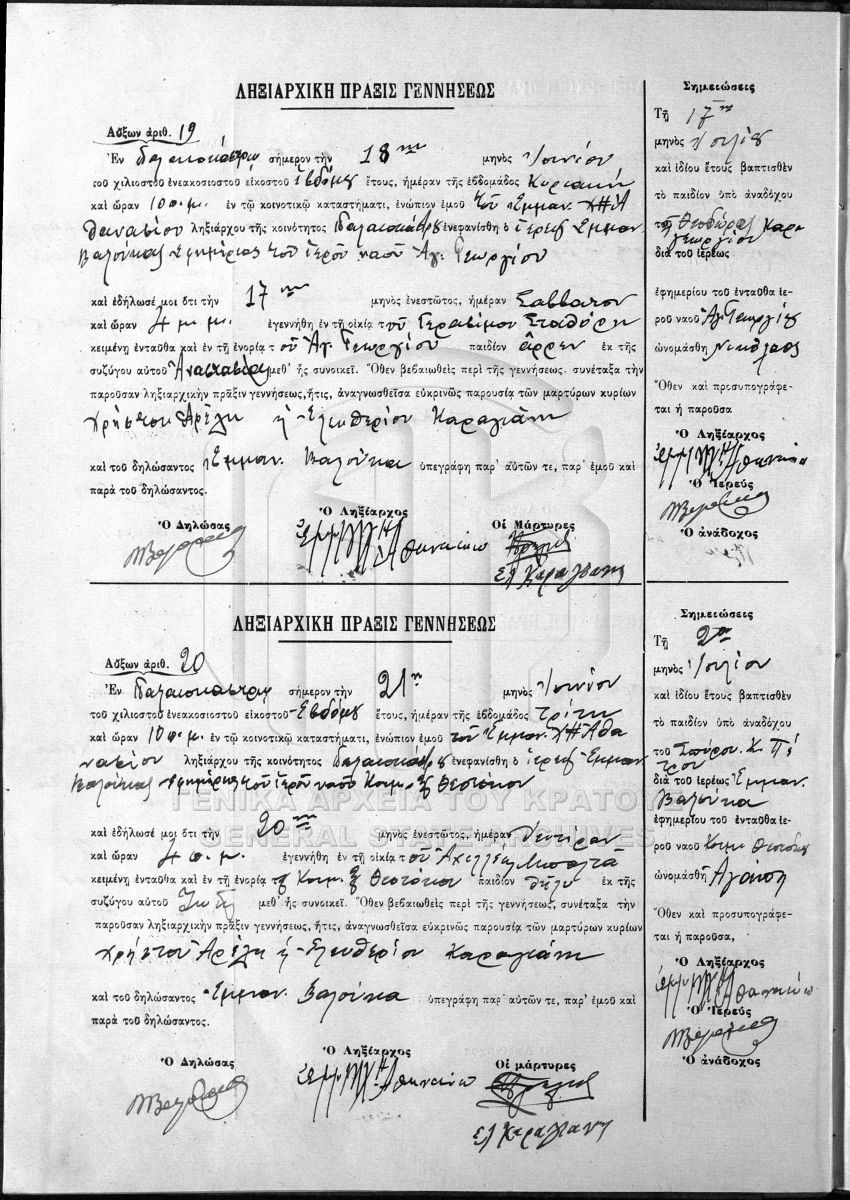 ΛΗΞΙΑΡΧΙΚΗ ΠΡΑΞΙΣ ΓΕΝΝΗΣΕΩΣ
Αὔξων ἀριθ. 19
Ἐν σήμερον τὴν 18ην μηνὸς Ἰουνίου
τοῦ χιλιοστοῦ ἐνεακοσιοστοῦ εἰκοστοῦ ἑβδόμου ἔτους, ἡμέραν τῆς ἑβδομάδος Κυριακὴν
καὶ ὥραν 10 π.μ. ἐν τῷ κοινοτικῷ καταστήματι, ἐνώπιον ἐμοῦ τοῦ Ἐμμαν. Χ"Ἀ
θανασίου ληξιάρχου τῆς κοινότητος ἐνεφανίσθη ὁ ἱερεὺς Ἐμμαν.
Βαλούκας ἐφημέριος τοῦ ἱεροῦ ναοῦ Ἁγ. Γεωργίου
καὶ ἐδήλωσέ μοι ὅτι τὴν 17ην μηνὸς ἐνεστῶτος, ἡμέραν Σάββατον
καὶ ὥραν 4 μ.μ. ἐγεννήθη ἐν τῇ οἰκίᾳ τοῦ Γερασίμου
κειμένῃ ἐνταῦθα καὶ ἐν τῇ ἐνορίᾳ τοῦ Ἁγ. Γεωργίου παιδίον ἄρρεν ἐκ τῆς
συζύγου αὐτοῦ Ἀναστασίας μεθ' ἧς συνοικεῖ. Ὅθεν βεβαιωθεὶς περὶ τῆς γεννήσεως. συνέταξα τὴν
παροῦσαν ληξιαρχικὴν πρᾶξιν γεννήσεως, ἥτις, ἀναγνωσθεῖσα εὐκρινῶς παρουσίᾳ τῶν μαρτύρων κυρίων
Χρήστου Ἀρέλη ἢ Ἐλευθερίου Καραγιάνη
καὶ τοῦ δηλώσαντος Ἐμμαν. Βαλούκα ὑπεγράφη παρ' αὐτῶν τε, παρ' ἐμοῦ καὶ
παρὰ τοῦ δηλώσαντος.
Ὁ Δηλώσας
Ὁ Ληξίαρχος
Οἱ Μάρτυρες
Ἐλ Καραγιανη
Σημειώσεις
Τῇ 17ην
μηνὸς Ἰουλίου
καὶ ἰδίου ἔτους βαπτισθὲν
τὸ παιδίον ὑπὸ ἀναδόχου
τῆς Θεοδώρας Καρα
γεωργίου
διὰ τοῦ ἱερέως
ἐφημερίου τοῦ ἐνταῦθα ἱε-
ροῦ ναοῦ Ἁγ. Γεωργίου
ὠνομάσθη Νικόλαος
Ὅθεν καὶ προσυπογράφε-
ται ἡ παροῦσα
Ὁ Ληξίαρχος
Ὁ Ἱερεὺς
Ὁ ἀνάδοχος
ΛΗΞΙΑΡΧΙΚΗ ΠΡΑΞΙΣ ΓΕΝΝΗΣΕΩΣ
Αὔξων ἀριθ. 20
Ἐν σήμερον τὴν 21η μηνὸς Ἰουνίου
τοῦ χιλιοστοῦ ἐνεακοσιοστοῦ εἰκοστοῦ ἑβδόμου ἔτους, ἡμέραν τῆς ἑβδομάδος τρίτην
καὶ ὥραν 10 π.μ. ἐν τῷ κοινοτικῷ καταστήματι, ἐνώπιον ἐμοῦ τοῦ Ἐμμαν. Χ"Ἀθα
νασίου ληξιάρχου τῆς κοινότητος ἐνεφανίσθη ὁ ἱερεὺς Ἐμμαν.
Βαλούκας ἐφημέριος τοῦ ἱεροῦ ναοῦ Κοιμ. Θεοτόκου
καὶ ἐδήλωσέ μοι ὅτι τὴν 20ην μηνὸς ἐνεστῶτος, ἡμέραν Δευτέραν
καὶ ὥραν 4 π.μ. ἐγεννήθη ἐν τῇ οἰκίᾳ τοῦ Ἀχιλλέα
κειμένῃ ἐνταῦθα καὶ ἐν τῇ ἐνορίᾳ Κοιμ. Θεοτόκου παιδίον θῆλυ ἐκ τῆς
συζύγου αὐτοῦ μεθ' ἧς συνοικεῖ. Ὅθεν βεβαιωθεὶς περὶ τῆς γεννήσεως, συνέταξα τὴν
παροῦσαν ληξιαρχικὴν πρᾶξιν γεννήσεως, ἥτις, ἀναγνωσθεῖσα εὐκρινῶς παρουσίᾳ τῶν μαρτύρων κυρίων
Χρήστου Ἀρέλη ἢ Ἐλευθερίου Καραγιάνη
καὶ τοῦ δηλώσαντος Ἐμμαν. Βαλούκα ὑπεγράφη παρ' αὐτῶν τε, παρ' ἐμοῦ καὶ
παρὰ τοῦ δηλώσαντος.
Ὁ Δηλώσας
Ὁ Ληξίαρχος
Οἱ μάρτυρες
Ἐλ Καραγιανη
Σημειώσεις
Τῇ 2α
μηνὸς Ἰουλίου
καὶ ἰδίου ἔτους βαπτισθὲν
τὸ παιδίον ὑπὸ ἀναδόχου
τοῦ Σπύρου Κ. Πέ
τρου
διὰ τοῦ ἱερέως Ἐμμαν.
Βαλούκα
ἐφημερίου τοῦ ἐνταῦθα ἱε-
ροῦ ναοῦ Κοιμ. Θεοτόκου
ὠνομάσθη Ἀγάπη
Ὅθεν καὶ προσυπογράφε-
ται ἡ παροῦσα,
Ὁ Ληξίαρχος
Ὁ Ἱερεὺς
Ὁ ἀνάδοχος
ΓΕΝΙΚΑ ΑΡΧΕΙΑ ΤΟΥ ΚΡΑΤΟΥΣ
GENERAL STATE ARCHIVES